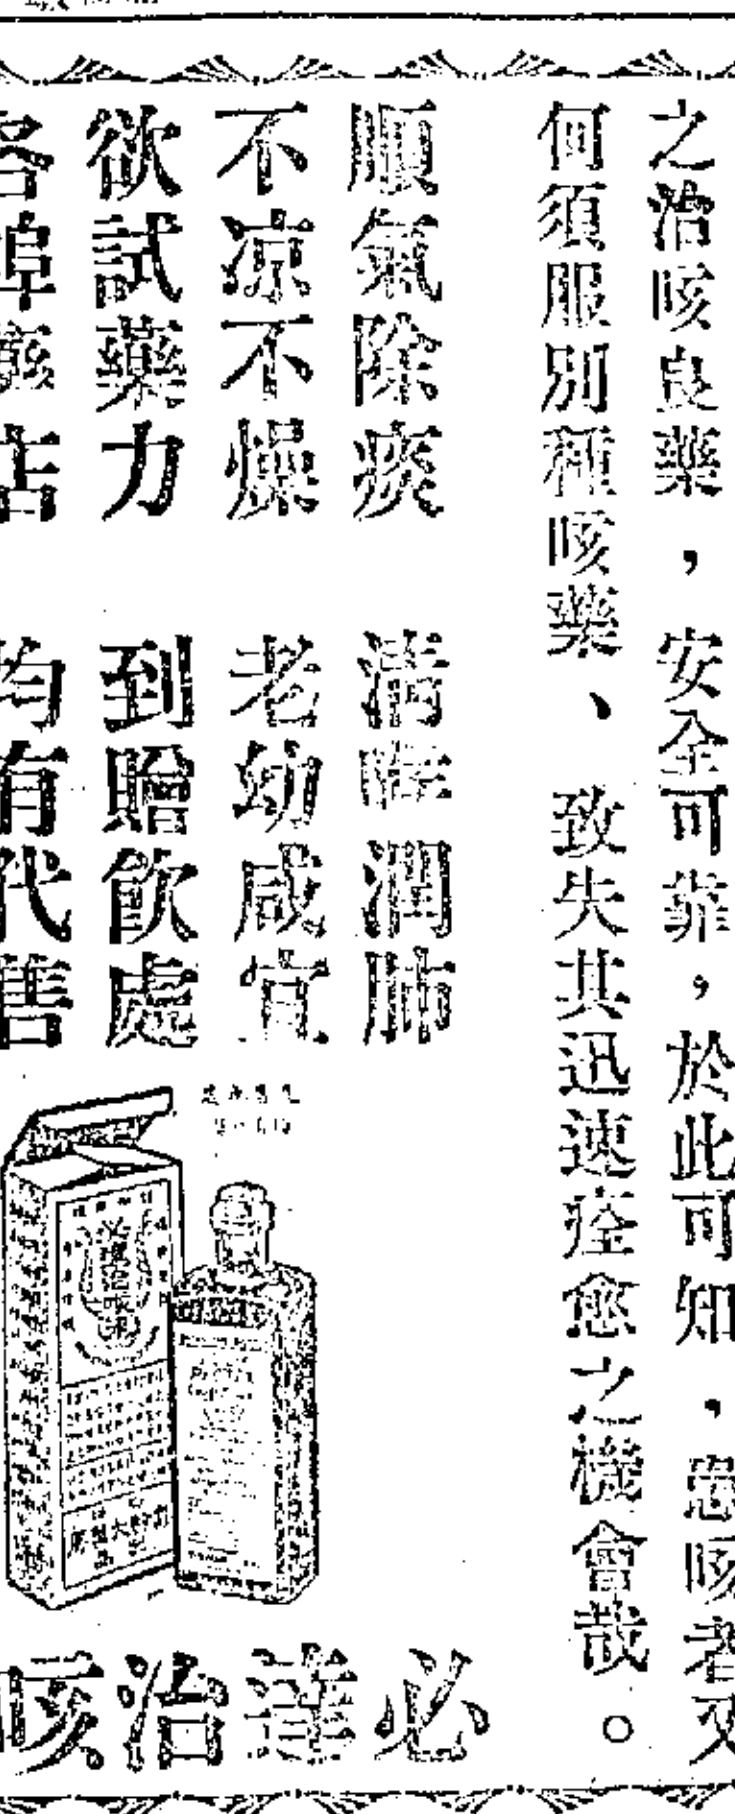 之治咳良藥，安全可靠，於此可知，患咳者又
何須服別種咳藥、致失其迅速痊愈之機會哉。
順氣除痰 清喉潤肺
不凉不燥 老幼咸宜
欲試藥力 到贈飲處
各埠藥店 均有代售
必達治咳